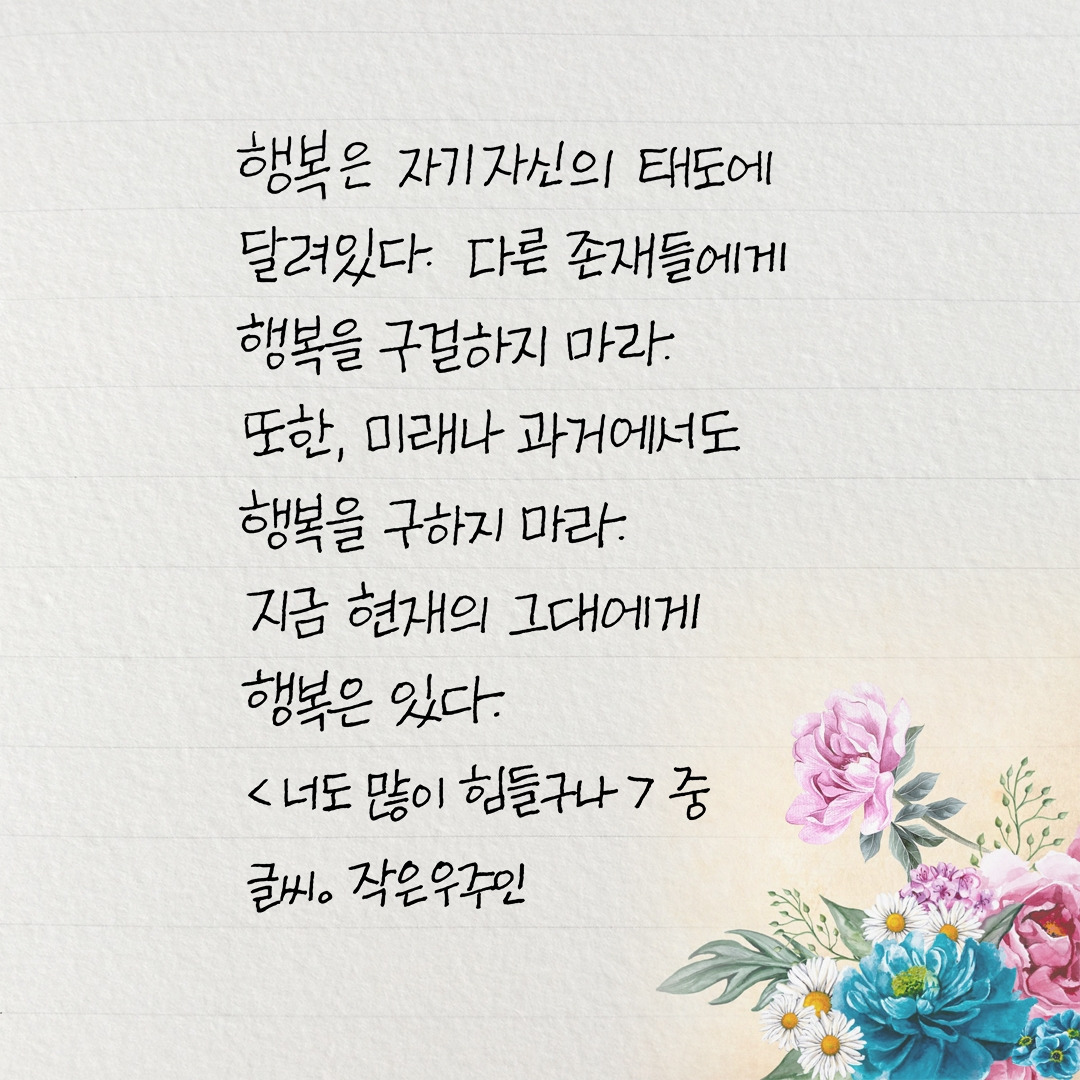 행복은 자기자신의 태도에
달려있다. 다른 존재들에게
행복을 구걸하지 마라.
또한, 미래나 과거에서도
행복을 구하지 마라.
지금 현재의 그대에게
행복은 있다.
<너도 많이 힘들구나> 중
글씨。 작은우주인